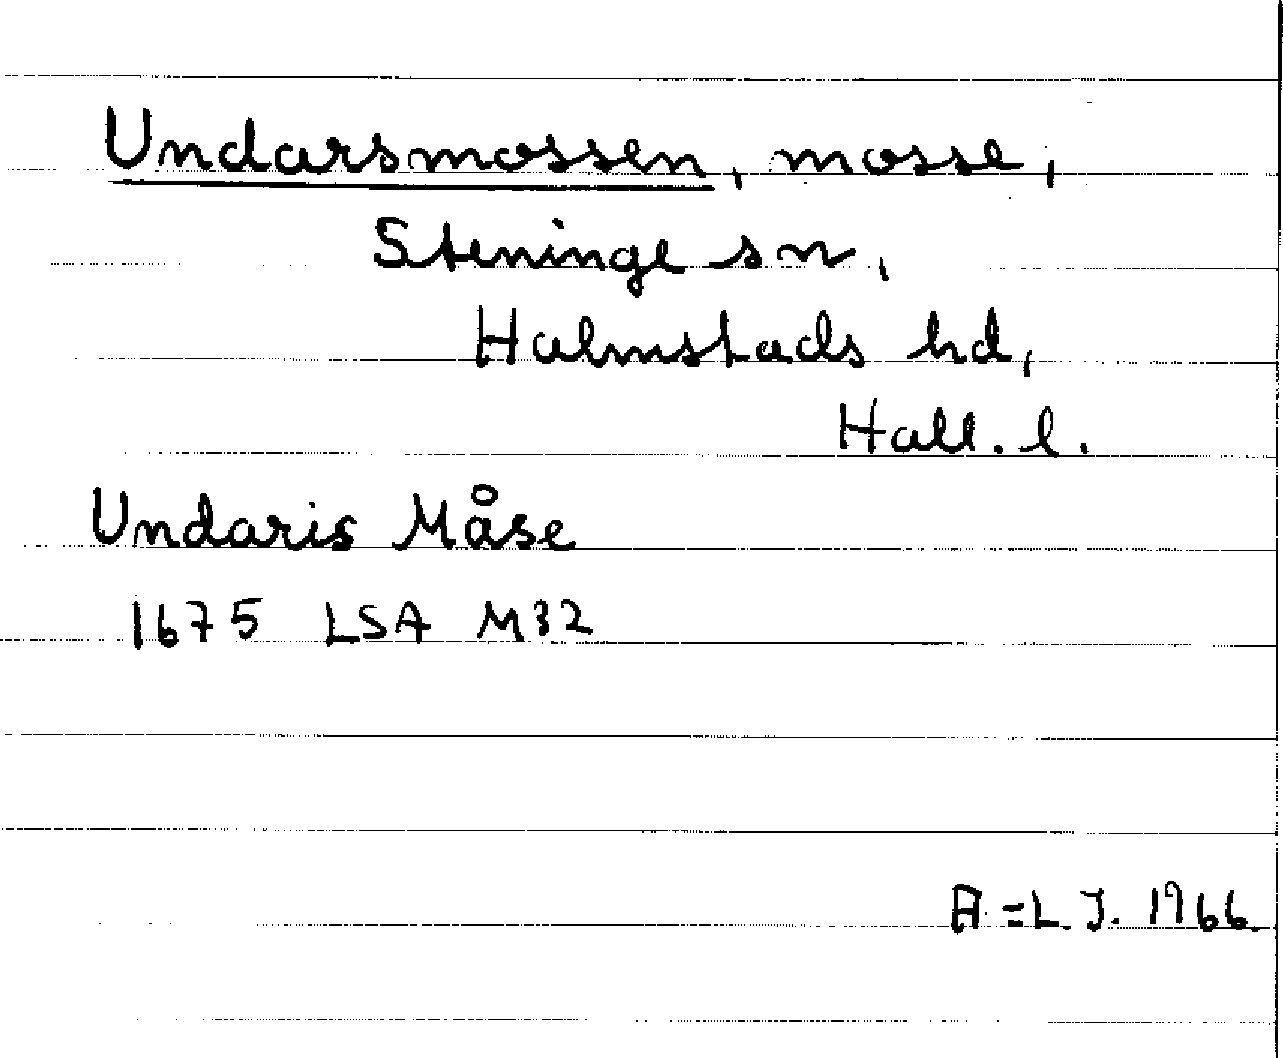 Undarsmossen, mosse,
Steninge sn,
Halmstads hd,
Hall. l.
Undaris Måse
1675 LSA M32
A-L J. 1966